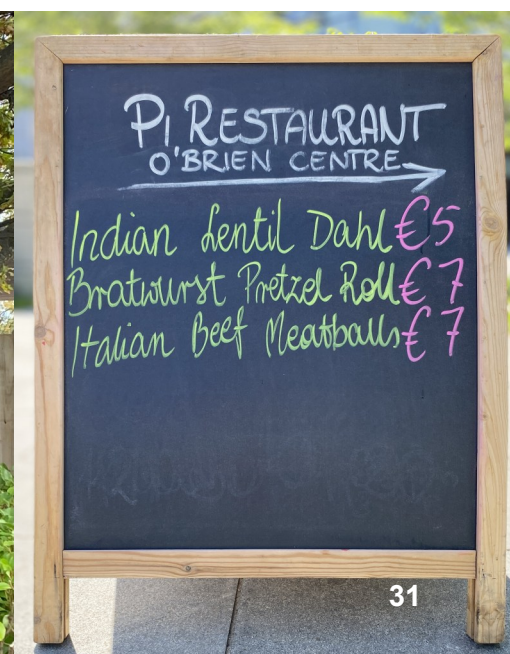 PI RESTAURANT
O'BRIEN CENTRE
Indian Lentil Dahl €5
Bratwurst Pretzel Roll €7
Italian Beef Meatballs €7
31